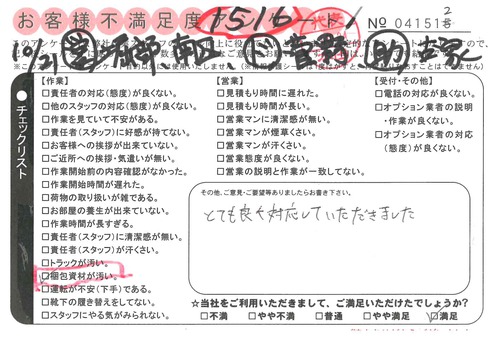 お客様不満足度
1516
№ 041518 2
10/21 営
助
チェックリスト
【作業】
□責任者の対応(態度)が良くない。
□他のスタッフの対応(態度)が良くない。
□作業を見ていて不安がある。
□責任者(スタッフ)に好感が持てない。
□お客様への挨拶が出来ていない。
□ご近所への挨拶・気遣いが無い。
□作業開始前の内容確認がなかった。
□作業開始時間が遅れた。
□荷物の取り扱いが雑である。
□お部屋の養生が出来ていない。
□作業時間が長すぎる。
□責任者(スタッフ)に清潔感が無い。
□責任者(スタッフ)が汗くさい。
□トラックが汚い。
□梱包資材が汚い。
□運転が不安(下手)である。
□靴下の履き替えをしてない。
□スタッフにやる気がみられない。
【営業】
□見積もり時間に遅れた。
□見積もり時間が長い。
□営業マンに清潔感が無い。
□営業マンが煙草くさい。
□営業マンが汗くさい。
□営業態度が良くない。
□営業の説明と作業が一致してない。
【受付・その他】
□電話の対応が良くない。
□オプション業者の説明
・作業が良くない。
□オプション業者の対応
(態度)が良くない。
その他、ご意見・ご要望等ありましたらお書き下さい。
とても良く対応していただきました
☆当社をご利用いただきまして、ご満足いただけたでしょうか?
□不満 □やや不満 □普通 □やや満足 ☑満足